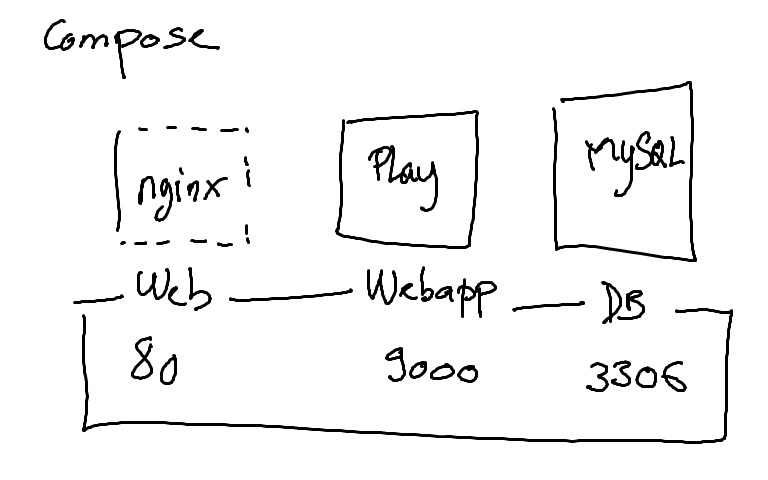 Compose
nginx Play MySQL
Web Webapp DB
80 9000 3306